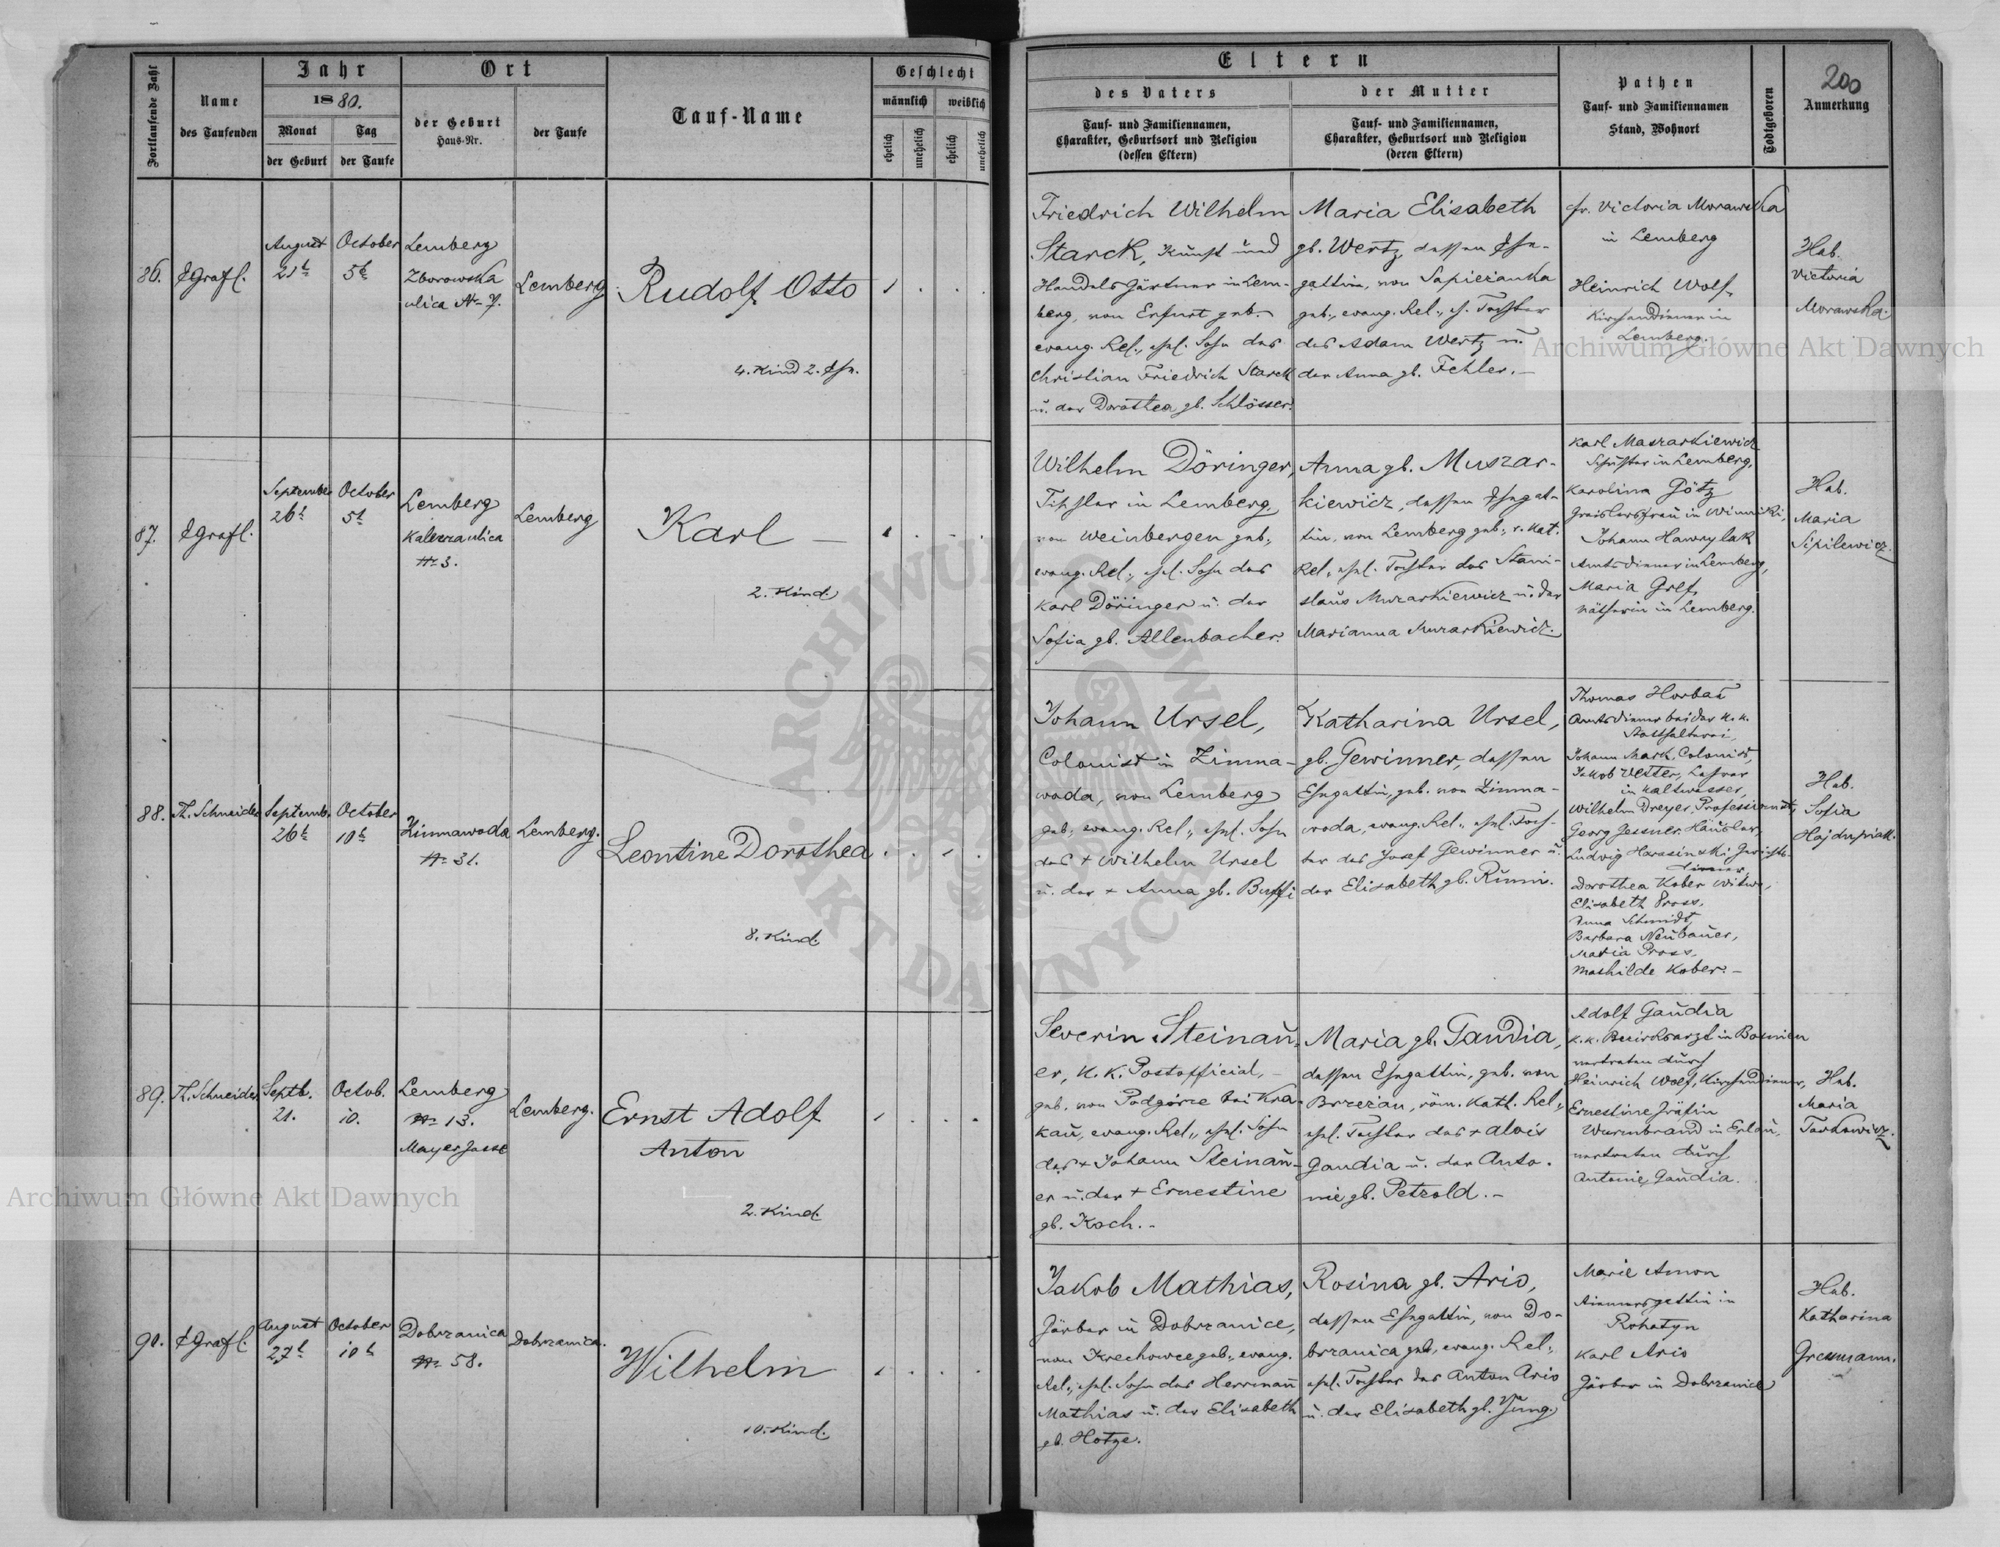 Fortlaufende Zahl
Name
des Taufenden
Jahr
1880.
Monat
der Geburt
Tag
der Taufe
Ort
der Geburt
Haus-Nr.
der Taufe
Tauf-Name
Geschlecht
männlich
weiblich
ehelich
unehelich
ehelich
unehelich
Eltern
des Vaters
Tauf- und Familiennamen,
Charakter, Geburtsort und Religion
(dessen Eltern)
der Mutter
Tauf- und Familiennamen,
Charakter, Geburtsort und Religion
(deren Eltern)
Pathen
Tauf- und Familiennamen
Stand, Wohnort
Todtgeboren
200
Anmerkung
86.
August
21t
October
5t
Lemberg
Zborowska
ulica Nr 7.
Lemberg
Rudolf Otto
4. Kind 2. Ehe.
Friedrich Wilhelm
Starck, Kunst und
Handels Gärtner in Lem-
berg, von Erfurt geb.
evang. Rel., ehel. Sohn des
Christian Friedrich Starck
u. der Dorothea gb. Schlösser.
Maria Elisabeth
gb. Wertz, dessen Ehe-
gattin, von Sapiezanka
geb., evang. Rel., eh. Tochter
des Adam Wertz u.
der Anna gb. Fehler.–
fr. Victoria Morawska
in Lemberg
Heinrich Wolf,
Kirchendiener in
Lemberg.
Heb.
Victoria
Morawska.
87.
September
26t
October
5t
Lemberg
Kaleczaulica
Nr 3.
Lemberg
Karl –
2. Kind.
Wilhelm Döringer,
Tischler in Lemberg,
von Weinbergen geb.,
evang. Rel., ehel. Sohn des
Karl Döringer u. der
Sofia gb. Allenbacher.
Anna gb. Muszar-
kiewicz, dessen Ehegat-
tin, von Lemberg geb., r. kat.
Rel., ehel. Tochter des Stani-
slaus Muzarkiewicz u. der
Marianna Muzarkiewicz.
Karl Maszarkiewicz
Schuster in Lemberg,
Karolina Götz
Greislersfrau in Winniki,
Johann Hawrylak
Amtsdiener in Lemberg,
Maria Gref,
Nätherin in Lemberg.
Heb.
Maria
Sipilewicz.
88.
Th. Schneider
Septemb.
26t
October
10t
Zimnawoda
Nr 31.
Lemberg.
Leontine Dorothea
8. Kind.
Johann Ursel,
Colonist in Zimna-
woda, von Lemberg
geb., evang. Rel., ehel. Sohn
des + Wilhelm Ursel
u. der + Anna gb.
Katharina Ursel,
gb. Gewinner, dessen
Ehegattin, geb. von Zimna-
woda, evang. Rel., ehel. Toch-
ter des Josef Gewinner u.
der Elisabeth gb.
Thomas Horbač
Amtsdiener bei der k. k.
Statthalterei,
Johann Mark, Colonist,
Jakob Vetter, Lehrer
in Kaltwasser,
Wilhelm Dreyer, Professionist,
Georg Jessner, Häusler,
Ludwig Harasinski, Gerichts-
diener,
Dorothea Kober Witwe,
Elisabeth Pross,
Anna Schmidt,
Barbara Neubauer,
Maria Pross,
Mathilde Kober.–
Heb.
Sofia
89.
Th. Schneider
Septb.
21.
Octob.
10.
Lemberg
Nr 13.
Mayergasse
Lemberg.
Ernst Adolf
Anton
2. Kind.
Severin Steinau-
er, k. k. Postofficial, –
geb. von Podgórze bei Kra-
kau, evang. Rel., ehel. Sohn
des + Johann Steinau-
er u. der + Ernestine
gb. Koch.–
Maria gb. Gaudia,
dessen Ehegattin, geb. von
Brzezan, röm. kath. Rel.,
ehel. Tochter des + Alois
Gaudia u. der Anto-
nie gb. Petzold.–
Adolf Gaudia
k. k. Bezirksarzt in Bosnien
vertreten durch
Heinrich Wolf, Kirchendiener,
Ernestine Gräfin
Wurmbrand in Erlau,
vertreten durch
Antonie Gaudia.
Heb.
Maria
Tarkowicz.
90.
August
27t
October
10t
Dobrzanica
Nr 58.
Dobrzanica.
Wilhelm
10. Kind.
Jakob Mathias,
Färber in Dobrzanice,
von Krechowce geb., evang.
Rel., ehel. Sohn des Herrmann
Mathias u. der Elisabeth
gb. Hotze.
Rosina gb. Ario,
dessen Ehegattin, von Do-
brzanica geb., evang. Rel.,
ehel. Tochter des Anton Ario
u. der Elisabeth gb. Jung.
Marie Amon
Riemersgattin in
Rohatyn
Karl Ario
Färber in Dobrzanica
Heb.
Katharina
Gressmann.
Archiwum Główne Akt Dawnych
Archiwum Główne Akt Dawnych
ARCHIWUM GŁÓWNE AKT DAWNYCH